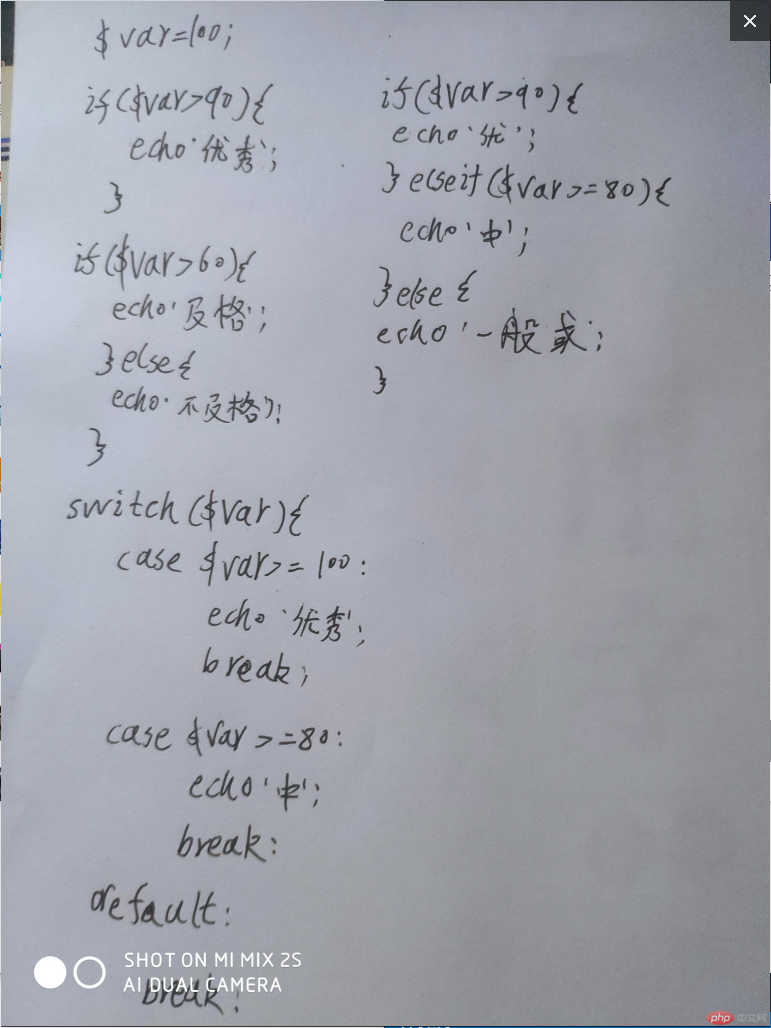 $var=100;
if($var>90){
echo '优秀';
}
if($var>60){
echo '及格';
}else{
echo '不及格';
}
if($var>90){
echo '优';
}elseif($var>=80){
echo '中';
}else{
echo '一般或';
}
switch($var){
case $var>=100:
echo '优秀';
break;
case $var>=80:
echo '中';
break:
default:
break:
SHOT ON MI MIX 2S
AI DUAL CAMERA
php 中文网